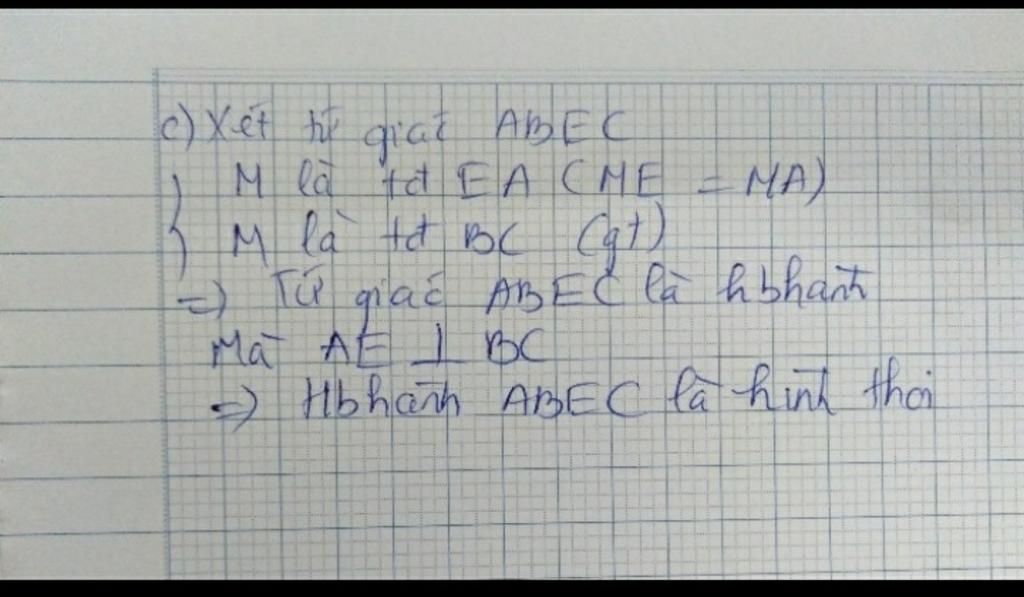 c) Xét tứ giác ABEC
M là tđ EA (ME = MA)
M là tđ BC (gt)
=> Tứ giác ABEC là hbhành
Mà AE ⊥ BC
=> Hbhành ABEC là hình thoi